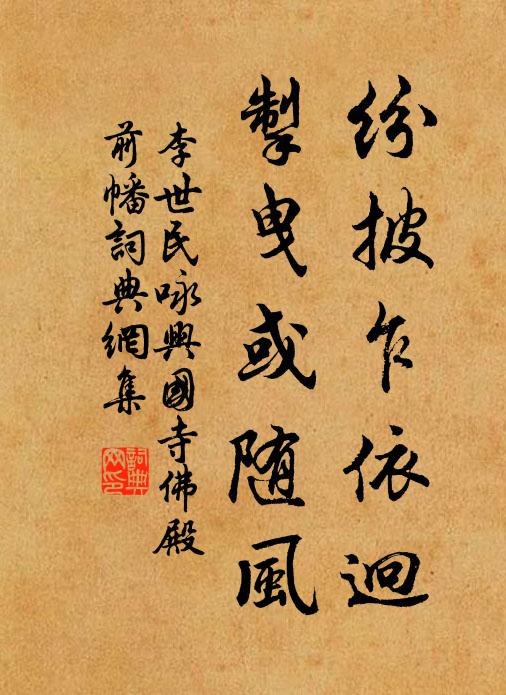 紛披乍依迥
掣曳或随風
李世民咏興國寺佛殿
前幡詞典網集
詞典網印